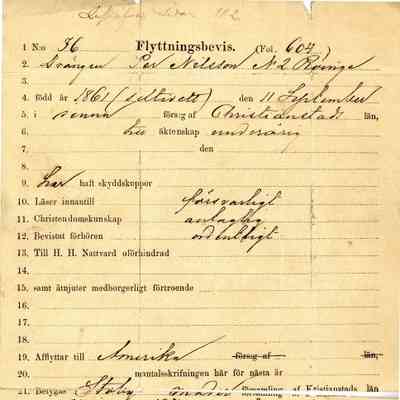 1 N:o 36 Flyttningsbevis. (Fol. 604)
2. Drängen Per Nilsson N 2 Röinge
3.
4. född år 1861 (settiett) den 11 September
5. i församl. af Christianstads län,
6. äktenskap underårig
7. den
8.
9. har haft skyddskoppor
10. Läser innantill försvarligt
11. Christendomskunskap antaglig
12. Bevistat förhören ordentligt
13. Till H. H. Nattvard oförhindrad
14.
15. samt åtnjuter medborgerligt förtroende
16.
17.
18.
19. Afflyttar till Amerika försg af län,
20. mantalsskrifningen här för nästa år
21. Betygas Stoby församling af Kristianstads län